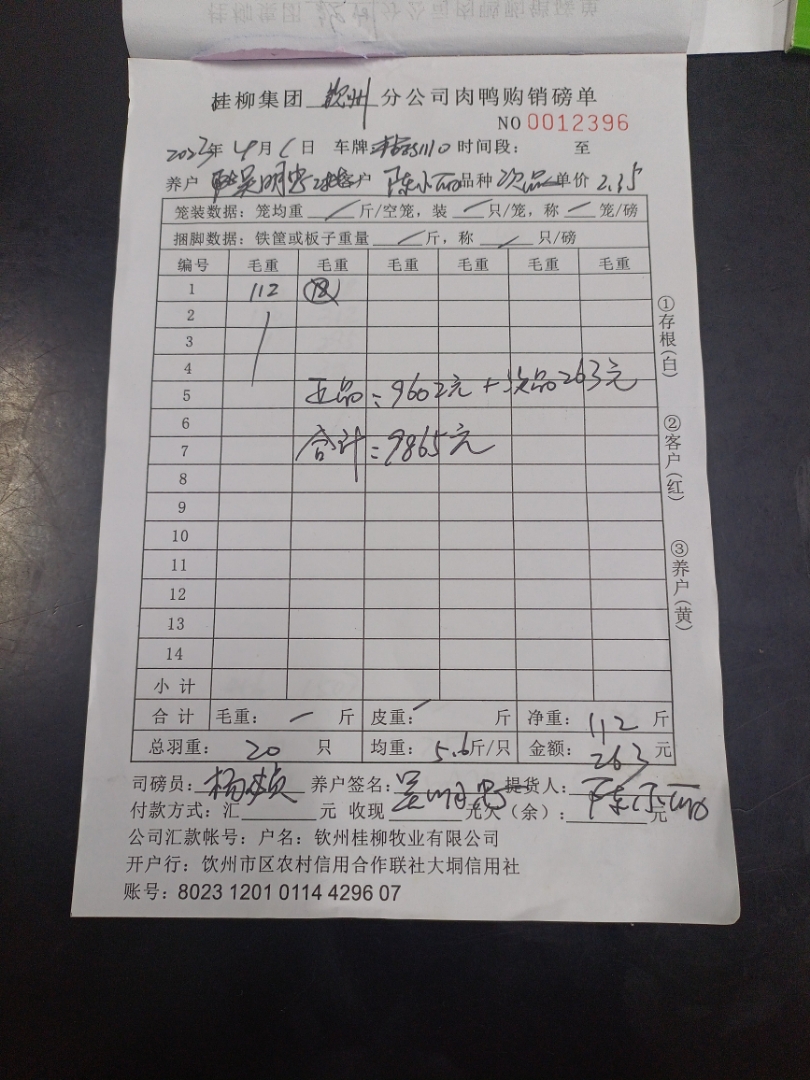 桂柳集团 钦州 分公司肉鸭购销磅单
NO 0012396
2023年 4月 6日 车牌 时间段： 至
养户 吴明忠 客户 陈小丽 品种 次品 单价 2.35
笼装数据：笼均重 / 斤/空笼，装 / 只/笼，称 / 笼/磅
捆脚数据：铁筐或板子重量 / 斤，称 / 只/磅
编号 毛重 毛重 毛重 毛重 毛重 毛重
1 112
2
3
4
5 正品=9602元+次品263元
6
7 合计=9865元
8
9
10
11
12
13
14
小计
合计 毛重： 斤 皮重： 斤 净重：112 斤
总羽重：20 只 均重：5.6斤/只 金额：263 元
司磅员：杨 养户签名：吴明忠 提货人：陈小丽
付款方式：汇 元 收现 元欠（余）： 元
公司汇款帐号：户名：钦州桂柳牧业有限公司
开户行：饮州市区农村信用合作联社大垌信用社
账号：8023 1201 0114 4296 07
①存根(白)
②客户(红)
③养户(黄)